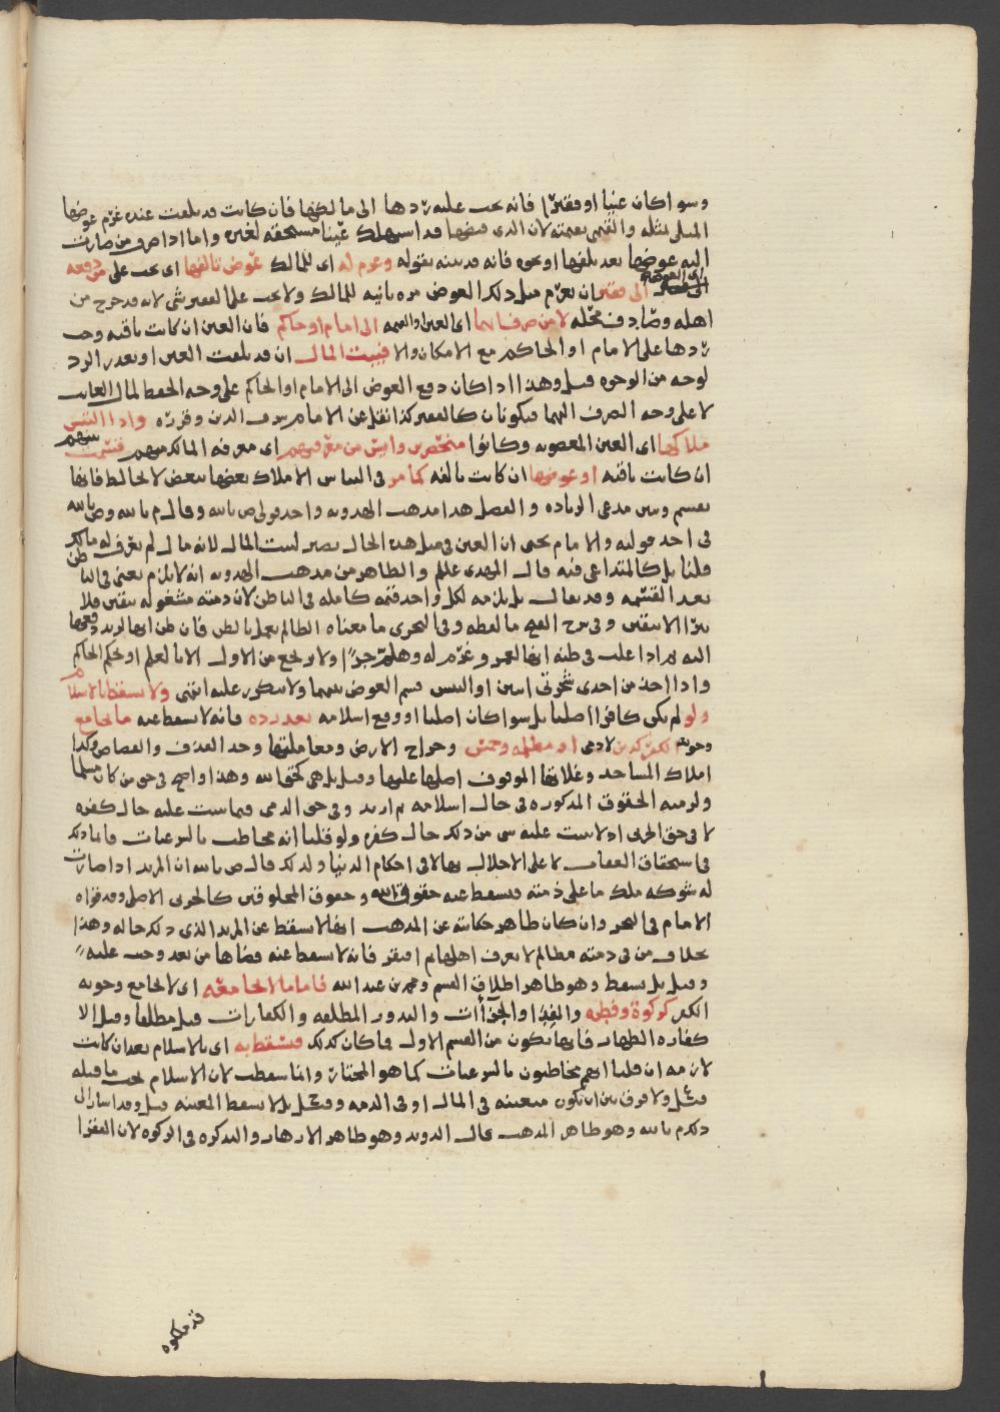 وسوا كان غنيا او فقيرا فانه يجب عليه ردها الى مالكها فان كانت قد تلفت عنده غرم عوضها
المثلى بمثله والقيمى بقيمته لان الذى قبضها قد استهلك عينا مستحقه لغيره واما اذا صرف من صارت
اليه عوضها بعد تلفها او نحوه فانه قد بينه بقوله وغرم له اى للمالك عوض تالفها اى يجب على من دفعه
اى العوض الى فقير ان يغرم مثل ذلك العوض مره ثانيه للمالك ولا يجب على الفقير شى لانه قد خرج من
اهله وصادف محله لا من صرفها اى العين او القيمه الى امام او حاكم فان العين ان كانت باقيه وجب
ردها على الامام او الحاكم مع الامكان والا فبيت المال ان قد تلفت العين او تعذر الرد
لوجه من الوجوه قيل وهذا اذا كان دفع العوض الى الامام او الحاكم على وجه الحفظ لمال الغايب
لا على وجه الصرف اليهما فيكونان كالفقير كذا نقل عن الامام شرف الدين وقرره واذا التبس
ملاكها اى العين المغصوبه وكانوا منحصرين وايس من معرفتهم اى معرفه المالك منهم قسمت بينهم
ان كانت باقيه او عوضها ان كانت تالفه كما مر فى التباس الاملاك بعضها ببعض لا بخالط فانها
تقسم ويبين مدعى الزياده والفضل هذا مذهب الهدويه واحد قولى ص بالله وقال م بالله وص بالله
فى احد قوليه والامام يحيى ان العين فى مثل هذه الحال تصير لبيت المال لانه مال لم يعرف له مالك
قلنا بل كالمتداعى فيه قال المهدى عليلم والظاهر من مذهب الهدويه انه لا يلزم يعنى فى الباطن
بعد القسمه وقد يقال بل يلزمه لكل واحد قيمه كامله فى الباطن لان ذمته مشغوله بيقين فلا
يبرا الا بيقين وفى شرح الفتح ما لفظه وفى البحرى ما معناه الظالم يعمل بالظن فان ظن انها لزيد دفعها
اليه ثم اذا غلب فى ظنه انها لعمرو غرم له وهلم جرا ولا يرجع من الاول الا بالعلم او بحكم الحاكم
واذا اخذ من احدى شجرتى اثنين او التبس قسم العوض بينهما ولا يتكرر عليه انتهى ولا يسقط بالاسلام
ولو لم يكن كافرا اصليا بل سوا كان اصليا او وقع اسلامه بعد رده فانه لا يسقط عنه ما يجامع
وجوبه الكفر كدين لادمى او مظلمه وخمس وخراج الارض ومعاملتها وحد القذف والقصاص وكذا
املاك المساجد وغلاتها الموقوف اصلها عليها وقيل بل هى كحق الله وهذا واضح فى حق من كان مسلما
ولزمته الحقوق المذكوره فى حال اسلامه ثم ارتد وفى حق الذمى فيما يثبت عليه حال كفره
لا فى حق الحربى اذ لا يثبت عليه شى من ذلك حال كفره ولو قلنا انه مخاطب بالشرعيات فانما ذلك
فى استحقاق العقاب لا على الاخلال بها لا فى احكام الدنيا ولذلك قال ص بالله ان المرتد اذا صارت
له شوكه ملك ما على ذمته فيسقط عنه حقوق الله وحقوق المخلوقين كالحربى الاصلى وقد قواه
الامام فى البحر وان كان ظاهر حكايته عن المذهب انها لا تسقط عن المرتد الذى ذلك حاله وهذا
بخلاف من فى ذمته مظالم لا يعرف اهلها ثم افتقر فانه لا يسقط عنه قضاها من بعد وجب عليه
وقيل بل يسقط وهو ظاهر اطلاق القسم ومحمد بن عبد الله فاما ما لا يجامعه اى لا يجامع وجوبه
الكفر كزكوة وفطره والفدا والجزاات والنذور المطلقه والكفارات قيل مطلقا وقيل الا
كفاره الظهار فانها تكون من القسم الاول فما كان كذلك فيسقط به اى بالاسلام بعد ان كانت
لازمه ان قلنا انهم مخاطبون بالشرعيات كما هو المختار وانما سقطت لان الاسلام يجب ما قبله
قيل ولا فرق بين ان تكون متعينه فى المال او فى الذمه وقيل بل لا تسقط المعينه قيل وقد اشار الى
ذلك م بالله وهو ظاهر المذهب قال الدوارى وهو ظاهر الازهار والتذكره فى الزكوه لان الفقرا
قد ملكوه